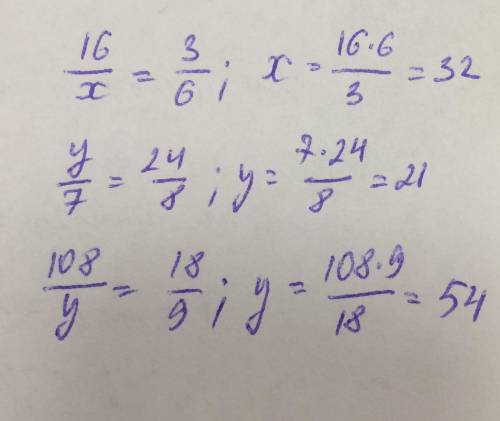 16/x = 3/6; x = 16·6/3 = 32
y/7 = 24/8; y = 7·24/8 = 21
108/y = 18/9; y = 108·9/18 = 54